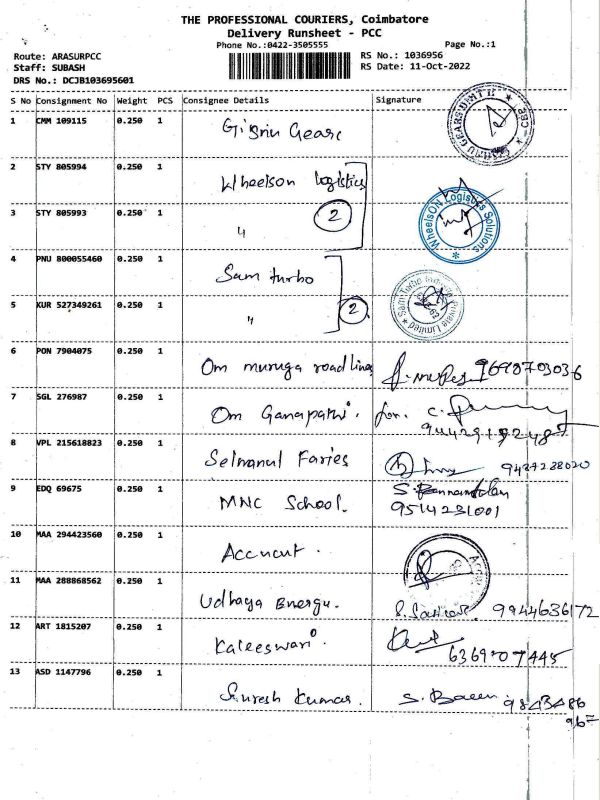 THE PROFESSIONAL COURIERS, Coimbatore
Delivery Runsheet - PCC
Phone No.:0422-3505555 Page No.:1
Route: ARASURPCC RS No.: 1036956
Staff: SUBASH RS Date: 11-Oct-2022
DRS No.: DCJB103695601
S No Consignment No Weight PCS Consignee Details Signature
1 CMM 109115 0.250 1
2 STY 805994 0.250 1 Wheelson logistics
3 STY 805993 0.250 1 " 2
WheelsON Logistics Solutions
4 PNU 800055460 0.250 1 Sam turbo
5 KUR 527349261 0.250 1 " 2
6 PON 7904075 0.250 1 Om muruga road lines 9698703036
7 SGL 276987 0.250 1 Om Ganapathi. for.
8 VPL 215618823 0.250 1 9487228020
9 EDQ 69675 0.250 1 MNC School. 9514231001
10 MAA 294423560 0.250 1
11 MAA 288868562 0.250 1 Udhaya 9944636172
12 ART 1815207 0.250 1 Kaleeswari 6369707445
13 ASD 1147796 0.250 1 Suresh Kumar.